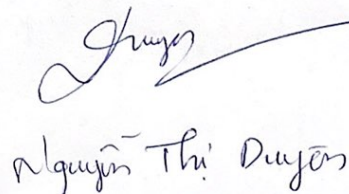 Duyên
Nguyễn Thị Duyên